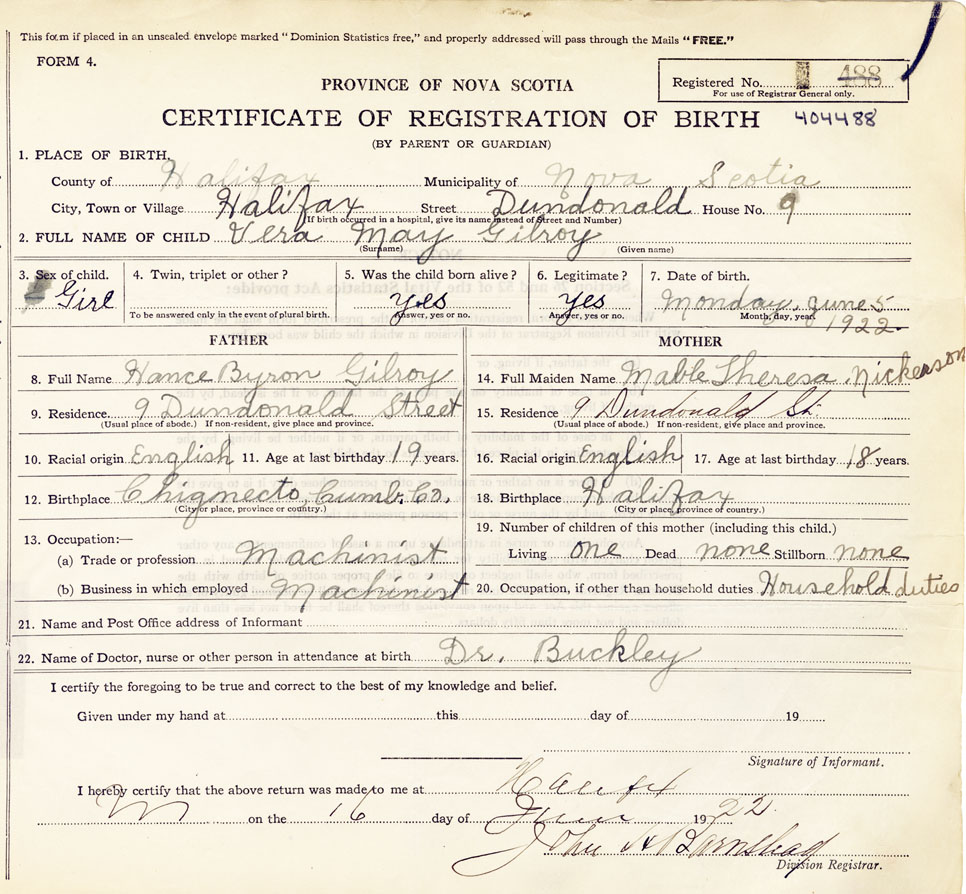 This form if placed in an unsealed envelope marked "Dominion Statistics free," and properly addressed will pass through the Mails "FREE."
FORM 4.
PROVINCE OF NOVA SCOTIA
Registered No. 488
For use of Registrar General only.
CERTIFICATE OF REGISTRATION OF BIRTH 404488
(BY PARENT OR GUARDIAN)
1. PLACE OF BIRTH,
County of Halifax Municipality of Nova Scotia
City, Town or Village Halifax Street Dundonald House No. 9
If birth occurred in a hospital, give its name instead of Street and Number)
2. FULL NAME OF CHILD Vera May Gilroy
(Surname) (Given name)
3. Sex of child. 4. Twin, triplet or other? 5. Was the child born alive? 6. Legitimate? 7. Date of birth.
Girl yes yes Monday, June 5
To be answered only in the event of plural birth. Answer, yes or no. Answer, yes or no. Month, day, year.
1922.
FATHER MOTHER
8. Full Name Vance Byron Gilroy 14. Full Maiden Name Mable Theresa Nickerson
9. Residence. 9 Dundonald Street 15. Residence 9 Dundonald St.
(Usual place of abode.) If non-resident, give place and province. (Usual place of abode.) If non-resident, give place and province.
10. Racial origin English 11. Age at last birthday 19 years. 16. Racial origin English 17. Age at last birthday 18 years.
12. Birthplace Chignecto, Cumb. Co. 18. Birthplace Halifax
(City or place, province or country.) (City or place, province or country.)
13. Occupation:— 19. Number of children of this mother (including this child.)
(a) Trade or profession Machinist Living one Dead none Stillborn none
(b) Business in which employed Machinist 20. Occupation, if other than household duties Household duties
21. Name and Post Office address of Informant
22. Name of Doctor, nurse or other person in attendance at birth Dr. Buckley
I certify the foregoing to be true and correct to the best of my knowledge and belief.
Given under my hand at this day of 19
Signature of Informant.
I hereby certify that the above return was made to me at Halifax
on the 16 day of June 1922.
John A
Division Registrar.